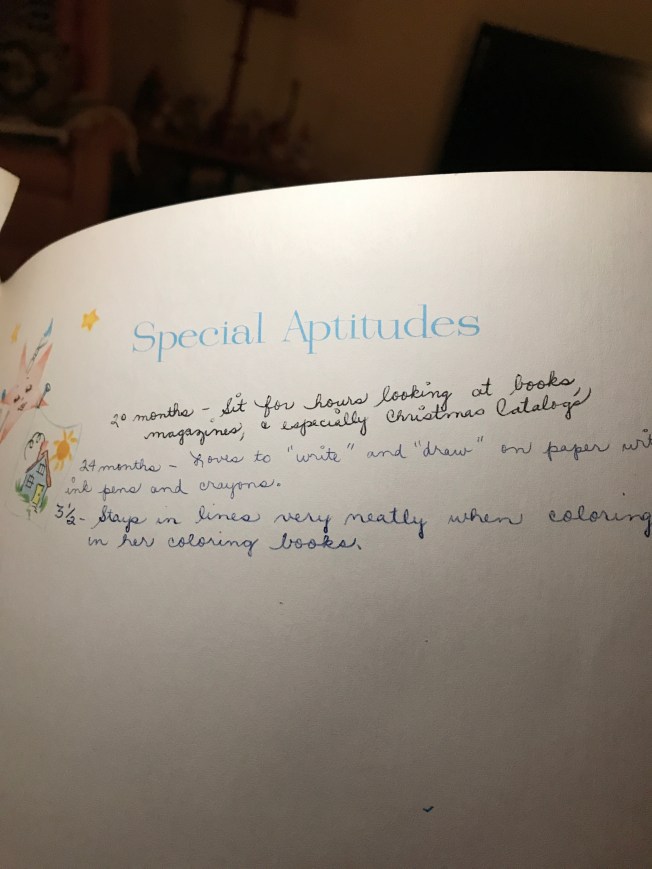 Special Aptitudes
20 months - Sit for hours looking at books,
magazines, & especially Christmas Catalogs
24 months - Loves to "write" and "draw" on paper wit
ink pens and crayons.
3 1/2 - Stays in lines very neatly when coloring
in her coloring books.